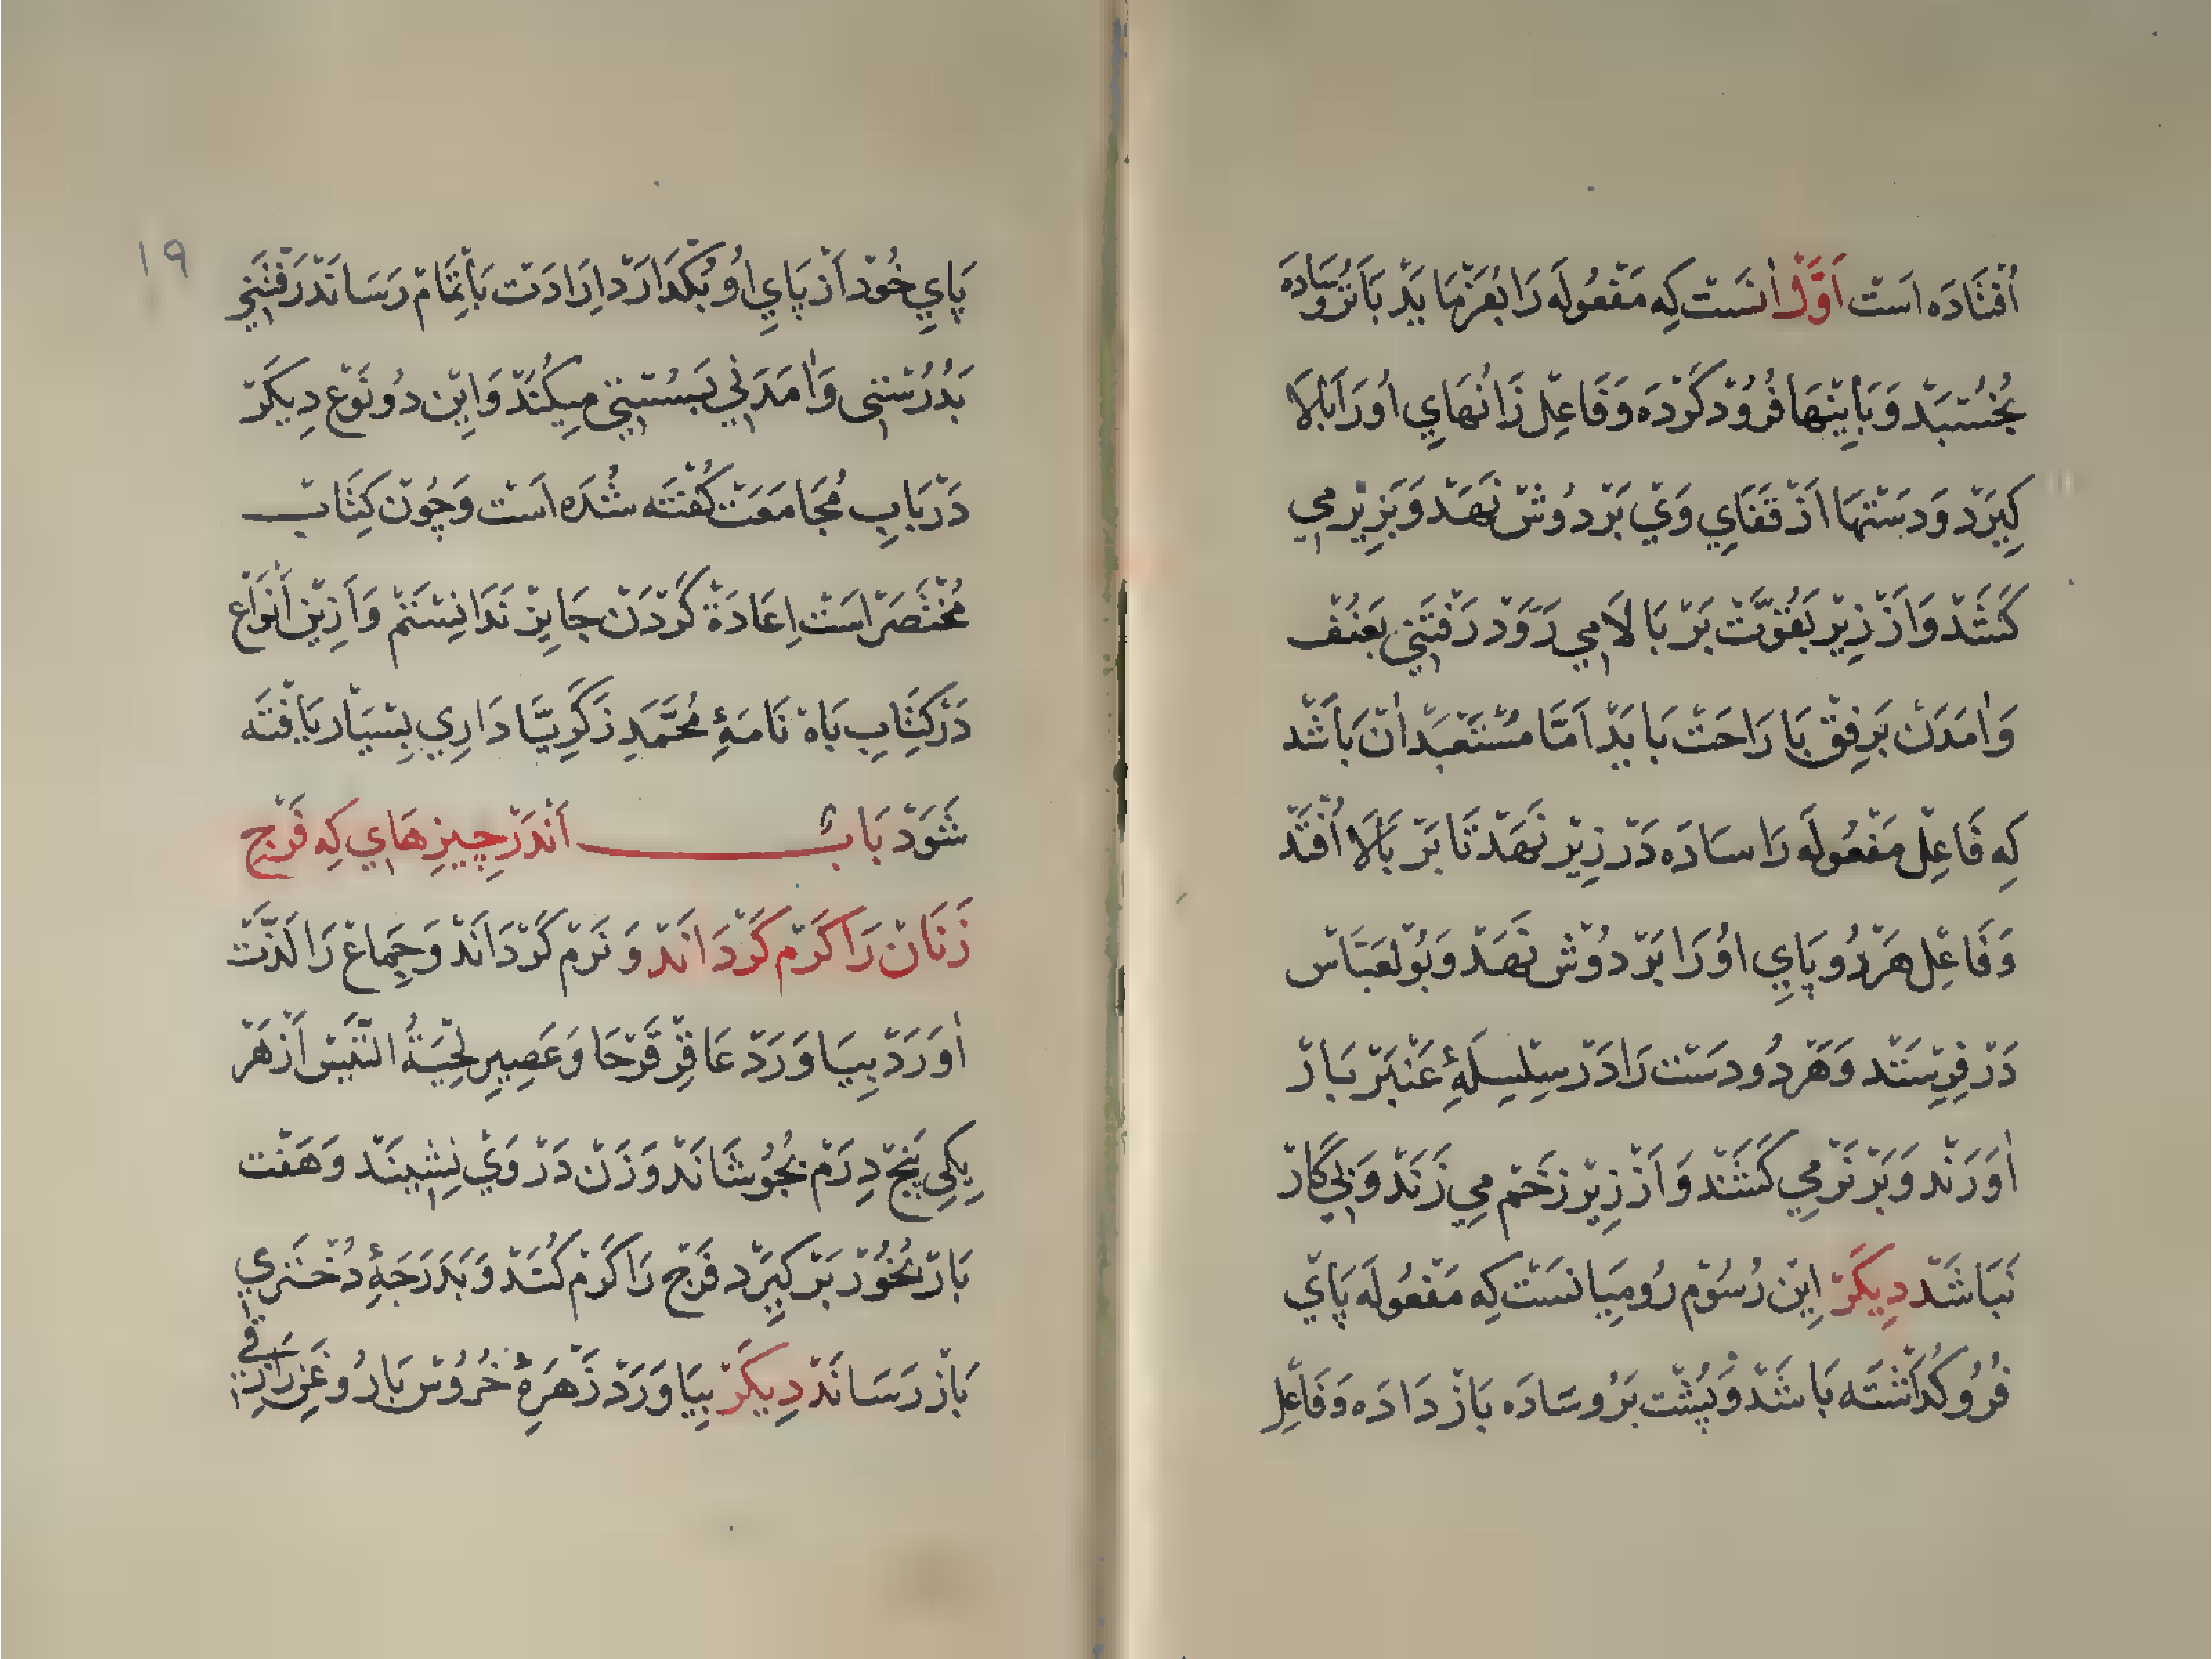 اُفْتَادَه اسَت اَوَّلْ اٰنسَت كِه مَفْعُولَه رَا بُفَرْمَايَدْ بَا بَرْ وسَادَه
بِخُسْبَدْ وَبَايِنْهَا فُرُودْ كَرْدَه وَفَاعِلْ رَانْهَايِ اُورَا بَالَا
گِيرَدْ وَدَسْتهَا اَزْ قَفَايِ وَيْ بَرْ دُوشْ نَهَدْ وَبَزِيْر مِي
كَشَدْ وَازْ زِيْر بَقُوَّتْ بَرْ بَالَا مِي رَوَدْ رَفْتَنِي بَعُنْف
وَاٰمَدَنْ بَرِفِقْ بَا رَاحَتْ بَايَدْ اَمَّا مُسْتَعْبَدْ اٰنْ بَاشَد
كِه فَاعِلْ مَفْعُولَه رَا سَادَه دَرْ زِيْر نَهَدْ تَا بَرْ بَالَا اُفْتَد
وَفَاعِلْ هَرْدُو پَايِ اوُ رَا بَرْ دُوْش نَهَدْ وَبُو لعَبَّاسْ
دَرْ فِرِسْتَد وَهَرْدُو دسَتْ رَا دَرْ سِلْسِلَهِٔ عَنْبَرْ بَارْ
اٰوَرَنْد وَبَرْ نَرْ مِي كَشَنْد وَاَزْ زِيْر زَخَمْ مِي زَنَدْ وَبِي كَارْ
نَبَاشَدْ دِيكَرْ اِيْن رُسُوْم رُومِيَانسَتْ كِه مَفْعُولَه پَايْ
فُرُو كُذَاشْتَه بَاشَدْ وَپُشْت بَرْ وسَادَه بَازْ دَادَه وَفَاعِل
۱۹
پَايِ خُودْ اَزْ پَايِ اُو بُكذَارَدْ اِرَادَت بَاتْمَامْ رَسَانَدْ رَفْتَنِي
بَدُرُسْتِى وَاٰمَدَنِي بَسُسْتِي مِيكُنَدْ وَاِيْن دُو نَوْع دِيكَرْ
دَرْ بَابِ مُجَامَعَتْ كُفْتَه شُدَه اسَتْ وَچُونْ كِتَابْ
مُخْتَصَرْ اسَتْ اِعَادَة كَرْدَنْ جَايِزْ نَدَانِسْتَمْ وَازِيْن اَنْوَاعْ
دَرْ كِتَابِ بَاهْ نَامَهِٔ مُحَمَّدِ زَكَرِيَّا دَارِي بِسْيَارْ يَافْتَه
شَوَدْ بَابٌ اَنْدَرْ چِيزِهَايِ كِه فَرْج
زَنَانْ رَا كَرْم كَرْدَانَدْ وَ نَرْم كَرْدَانَدْ وَجِمَاعْ رَا لَذَّتْ
اٰوَرَدْ بِيَاوَرَدْ عَاقِرْ قَرْحَا وَعَصِيرِ لِحْيَةُ التَّيْسْ اَزْ هَرْ
يِكِي پَنجْ دِرَمْ بجُوشَانَدْ وَزَنْ دَرْ وَيْ نِشِينَدْ وَهَفْت
بَارْ بُخُوْر بَرْ كِيرَدْ فَرْج رَا كَرْم كُنَدْ وَبَدَرَجَهِٔ دُخْتَرِي
بَازْ رَسَانَدْ دِيكَرْ بِيَاوَرَدْ زَهْرَهِٔ خُرُوْس